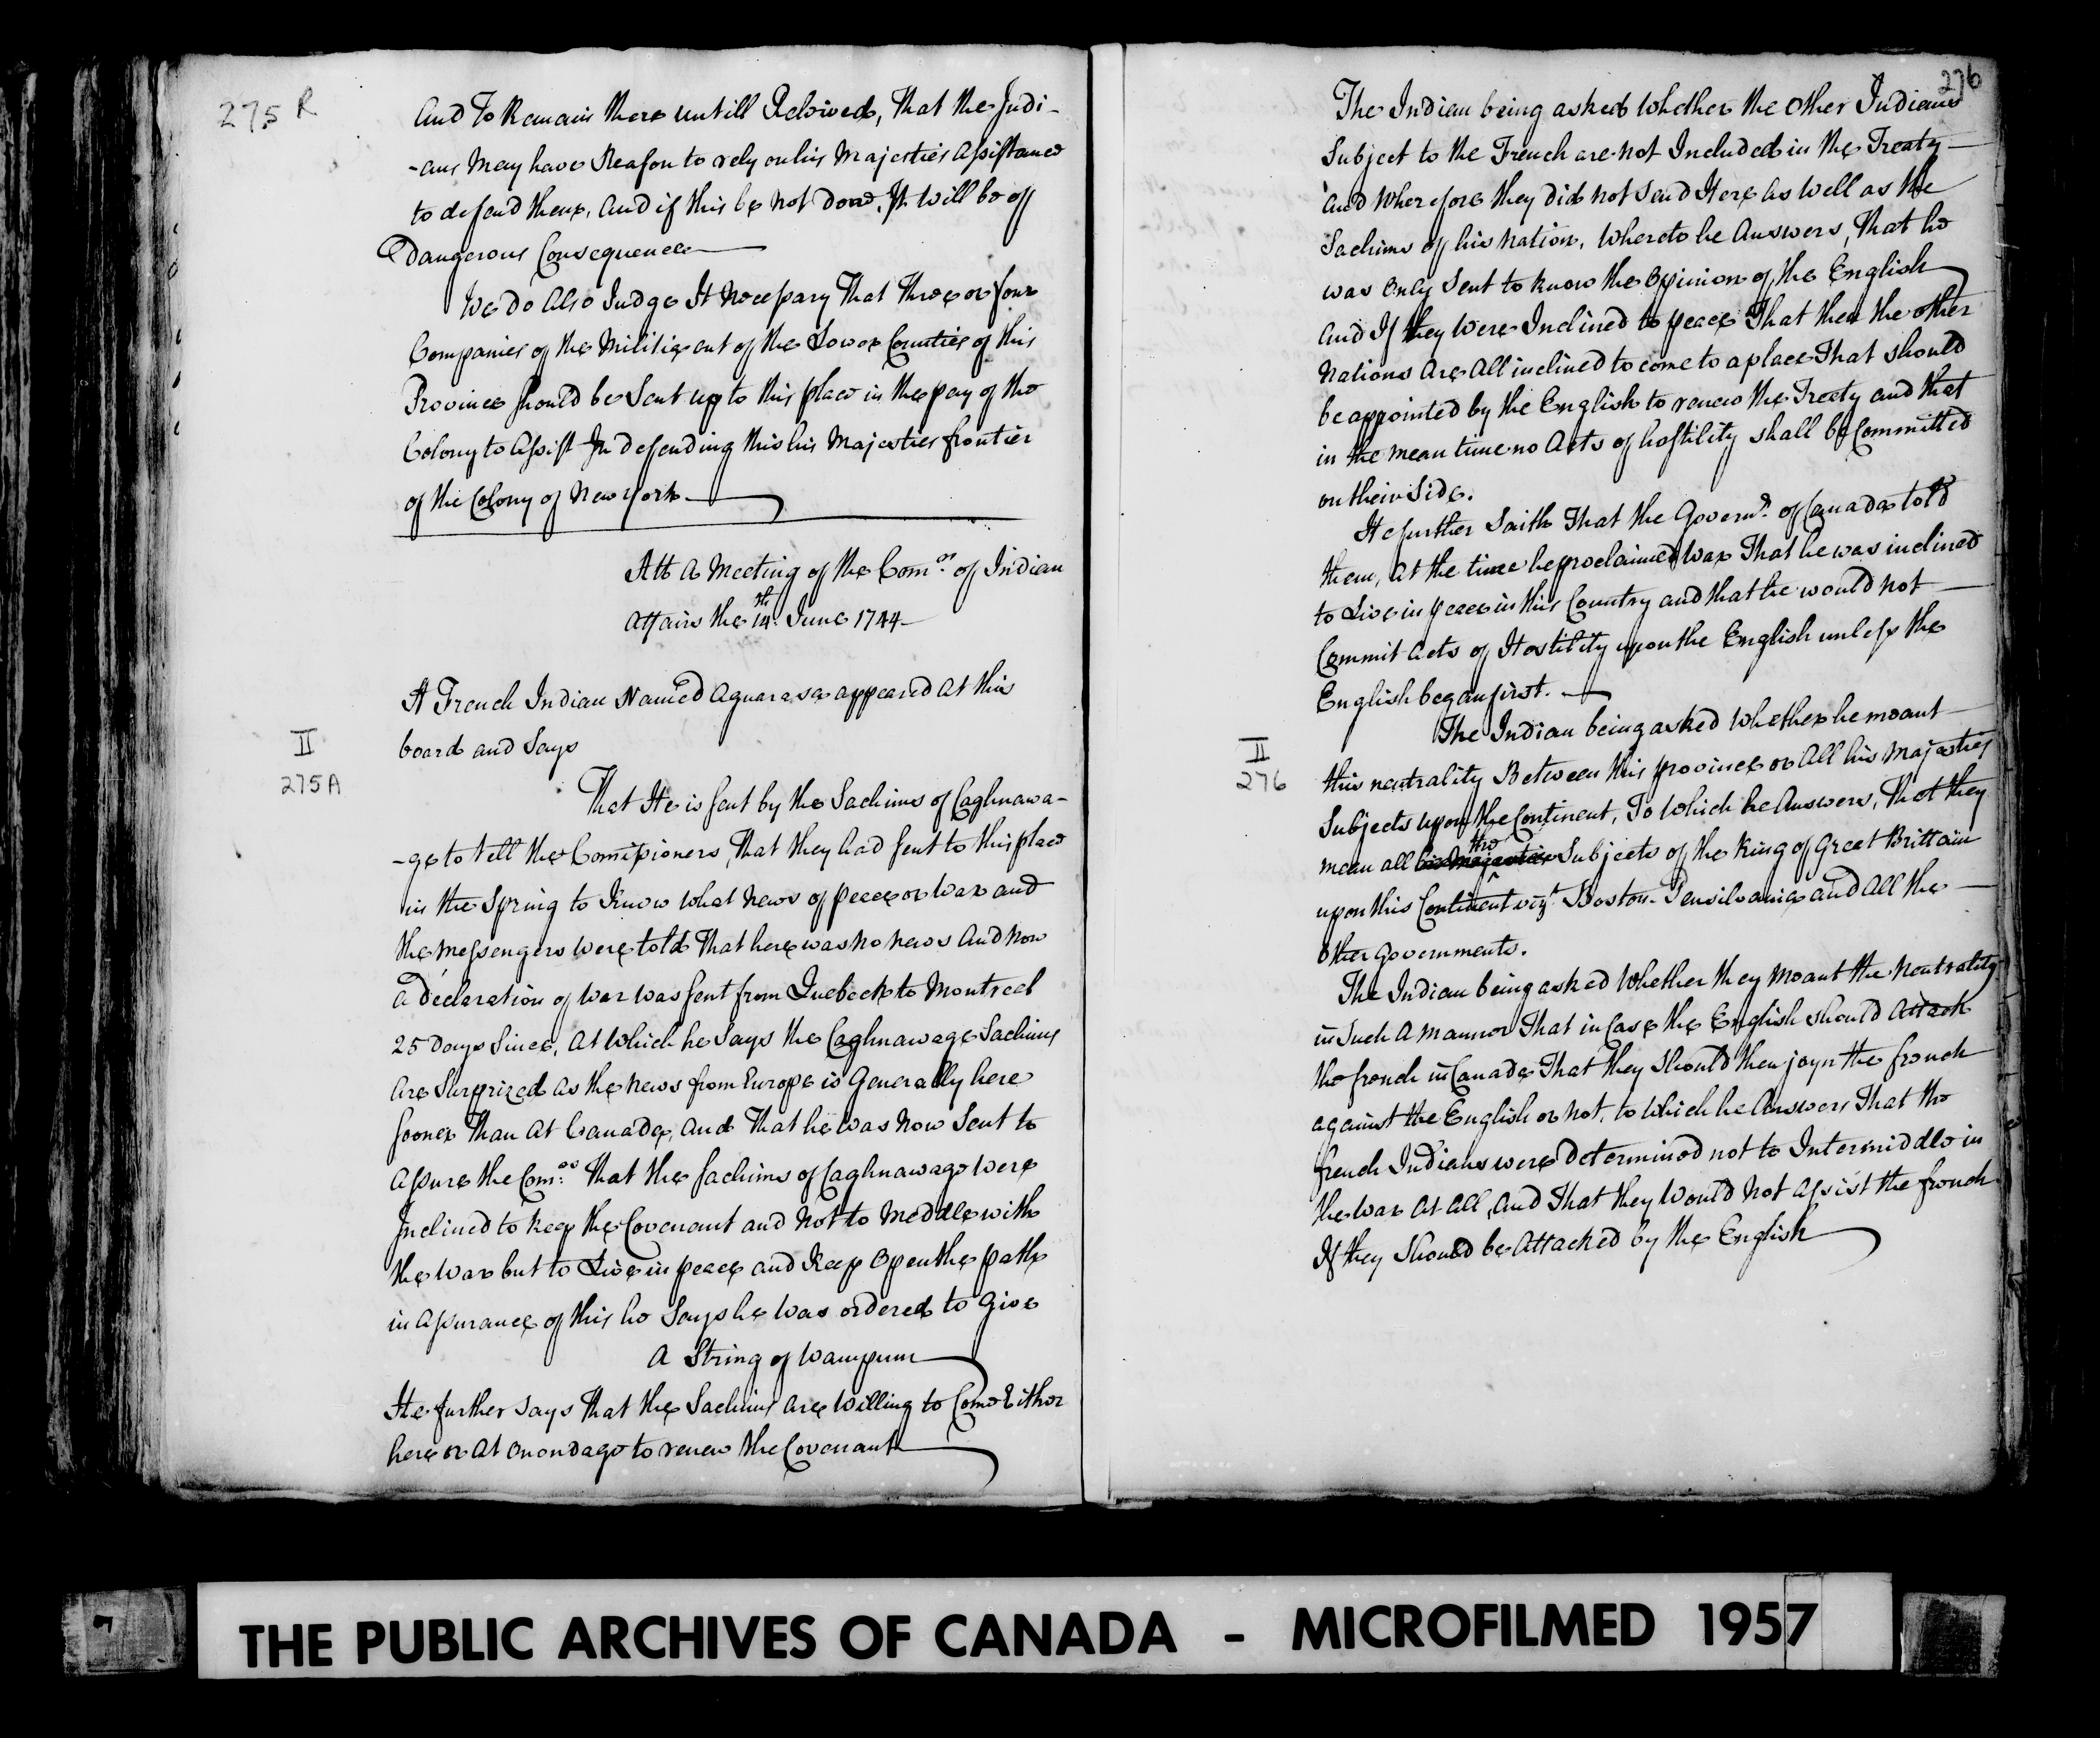 275 R
And To Remain there untill Releived, That the Indi-
-ans May have Reason to rely on his Majesties Assistance
to defend them, And if this be not done, It will be off
Dangerous Consequence
We do Also Judge It Necessary That Three or four
Companies of the Militie out of the Lower Counties of this
Province should be Sent up to this place in the pay of the
Colony to Assist In defending this his Majesties frontier
of the Colony of New York
Att A Meeting of the Com.rs of Indian
Affairs the 14th. June 1744
A French Indian Named Aguarasa appeared At this
board and Says
II
275A
That He is sent by the Sachims of Caghnawa-
-ge to tell the Commissioners, That they had sent to this place
in the Spring to Know what News of peace or War and
the Messengers were told That here was No news And Now
a declaration of War was sent from Quebeck to Montreal
25 Days Since, At which he Says the Caghnawage Sachims
Are Surprized As the News from Europe is Generally here
sooner Than At Canada, And That he was Now Sent to
Assure the Com.rs That the Sachims of Caghnawage Were
Inclined to Keep the Covenant and Not to Meddle with
the War but to Live in peace and Keep Open the path
in Assurance of this he Says he Was ordered to Give
A String of Wampum
He further says That the Sachims Are Willing to Come Either
here or At Onondage to renew the Covenant
276
The Indian being asked Whether the Other Indians
Subject to the French are not Included in the Treaty
and Wherefore they did not Send Here As Well as the
Sachims of his Nation, Whereto he Answers, That he
was Only Sent to Know the Opinion of the English
And If they Were Inclined to peace That then the other
Nations Are All inclined to come to a place That should
be appointed by the English to renew the Treaty and that
in the Mean time no Acts of hostility shall be Committed
on their Side.
He further Saith That the Governr. of Canada told
them, At the time he proclaimed War That he was inclined
to Live in peace in this Country and that he would not
Commit Acts of Hostility upon the English unless the
English began first.
The Indian being asked Whether he meant
II
276
this neutrality Between this province or All his Majesties
Subjects upon the Continent, To Which he Answers, That they
the
mean all his Majesties Subjects of the King of Great Brittain
upon this Continent vizt Boston Pensilvania and All the
Other Governments.
The Indian being asked Whether they Meant the Neutrality
in Such A Manner That in Case the English should Attack
the french in Canada That they Should then joyn the french
against the English or not, to Which he Answers That the
french Indians were Determined not to Intermiddle in
the War At All, And That they Would Not Assist the french
If they Should be Attacked by the English
7
THE PUBLIC ARCHIVES OF CANADA - MICROFILMED 1957